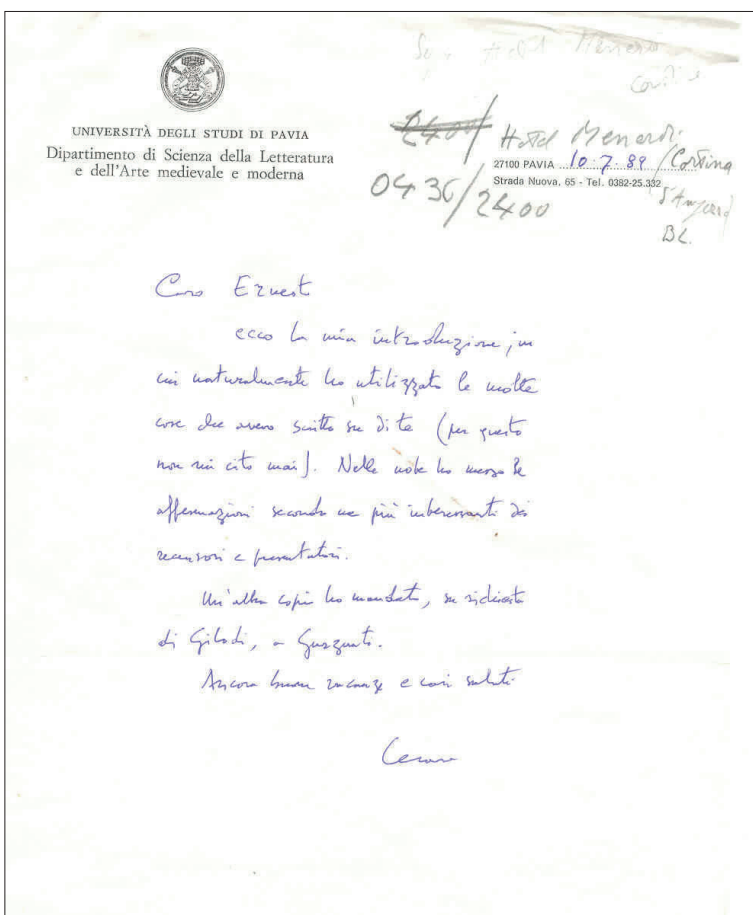 Hotel Menardi
UNIVERSITÀ DEGLI STUDI DI PAVIA
Dipartimento di Scienza della Letteratura
e dell'Arte medievale e moderna
2400/ Hotel Menardi
27100 PAVIA 10.7.89 /Cortina
Strada Nuova, 65 - Tel. 0382-25.332
0436/2400
d'Ampezzo
BL.
Caro Ernesto
ecco la mia introduzione, in
cui naturalmente ho utilizzato le molte
cose che avevo scritto su di te (per questo
non mi cito mai). Nelle note ho messo le
affermazioni secondo me più interessanti dei
recensori e presentatori.
Un'altra copia ho mandato, su richiesta
di Gilodi, a
Ancora buone vacanze e cari saluti
Cesare